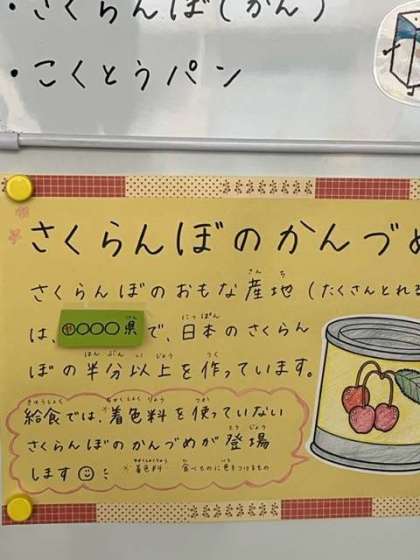 ・さくらんぼ(かん)
・こくとうパン
さくらんぼのかんづめ
さくらんぼのおもな産地(たくさんとれる
は、○○○○県で、日本のさくらん
ぼの半分以上を作っています。
給食では、着色料を使っていない
さくらんぼのかんづめが登場
します☺ ※着色料…食べものに色をつけるもの